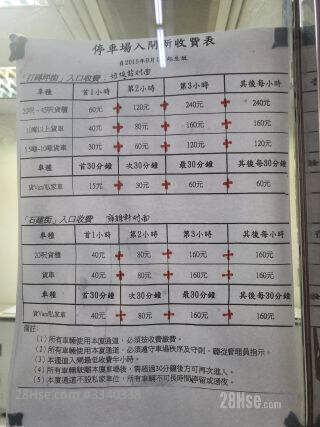 停車場入閘所收費表
自2015年9月1日起生效
「打磚坪街」入口收費
車種 首1小時 第2小時 第3小時 其後每小時
20呎-45呎貨櫃 60元 + 120元 + 240元 + 240元
10噸以上貨車 40元 + 80元 + 160元 + 160元
5.5噸-10噸貨車 30元 + 60元 + 120元 + 120元
車種 首30分鐘 次30分鐘 最30分鐘 其後每30分鐘
貨Van/私家車 15元 + 30元 + 60元 + 60元
「石排街」入口收費
車種 首1小時 第2小時 第3小時 其後每小時
20呎貨櫃 40元 + 80元 + 160元 + 160元
貨車 40元 + 80元 + 160元 + 160元
車種 首30分鐘 次30分鐘 最30分鐘 其後每30分鐘
貨Van/私家車 40元 + 80元 + 160元 + 160元
備註:
(1) 所有車輛使用本廈通道,必須按收費繳費。
(2) 所有車輛使用本廈通道,必須遵守車場秩序及守則、聽從管理員指示。
(3) 本廈道入閘最低收費半小時。
(4) 所有車輛駛離本廈車場後,需超過30分鐘後方可再次進入。
(5) 本廈通道不設私家車位,所有車輛不可長時間停留或過夜。
28Hse.com #3340338
28Hse.com